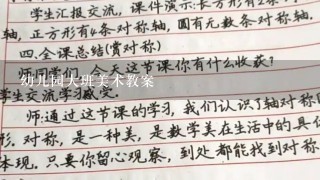 学生汇报交流，课件演示：长方形有2条
轴，正方形有4条对称轴，圆有无数条对称轴.
四.全课总结(赏对称)
今天这节课你有什么收获？
幼儿园大班美术教案
学生交流学习
师：通过这节课的学习，我们认识了轴对称
形.对称，是一种美，是数学美在生活中的具
体现.只要你留心观察，到处都能找到对称